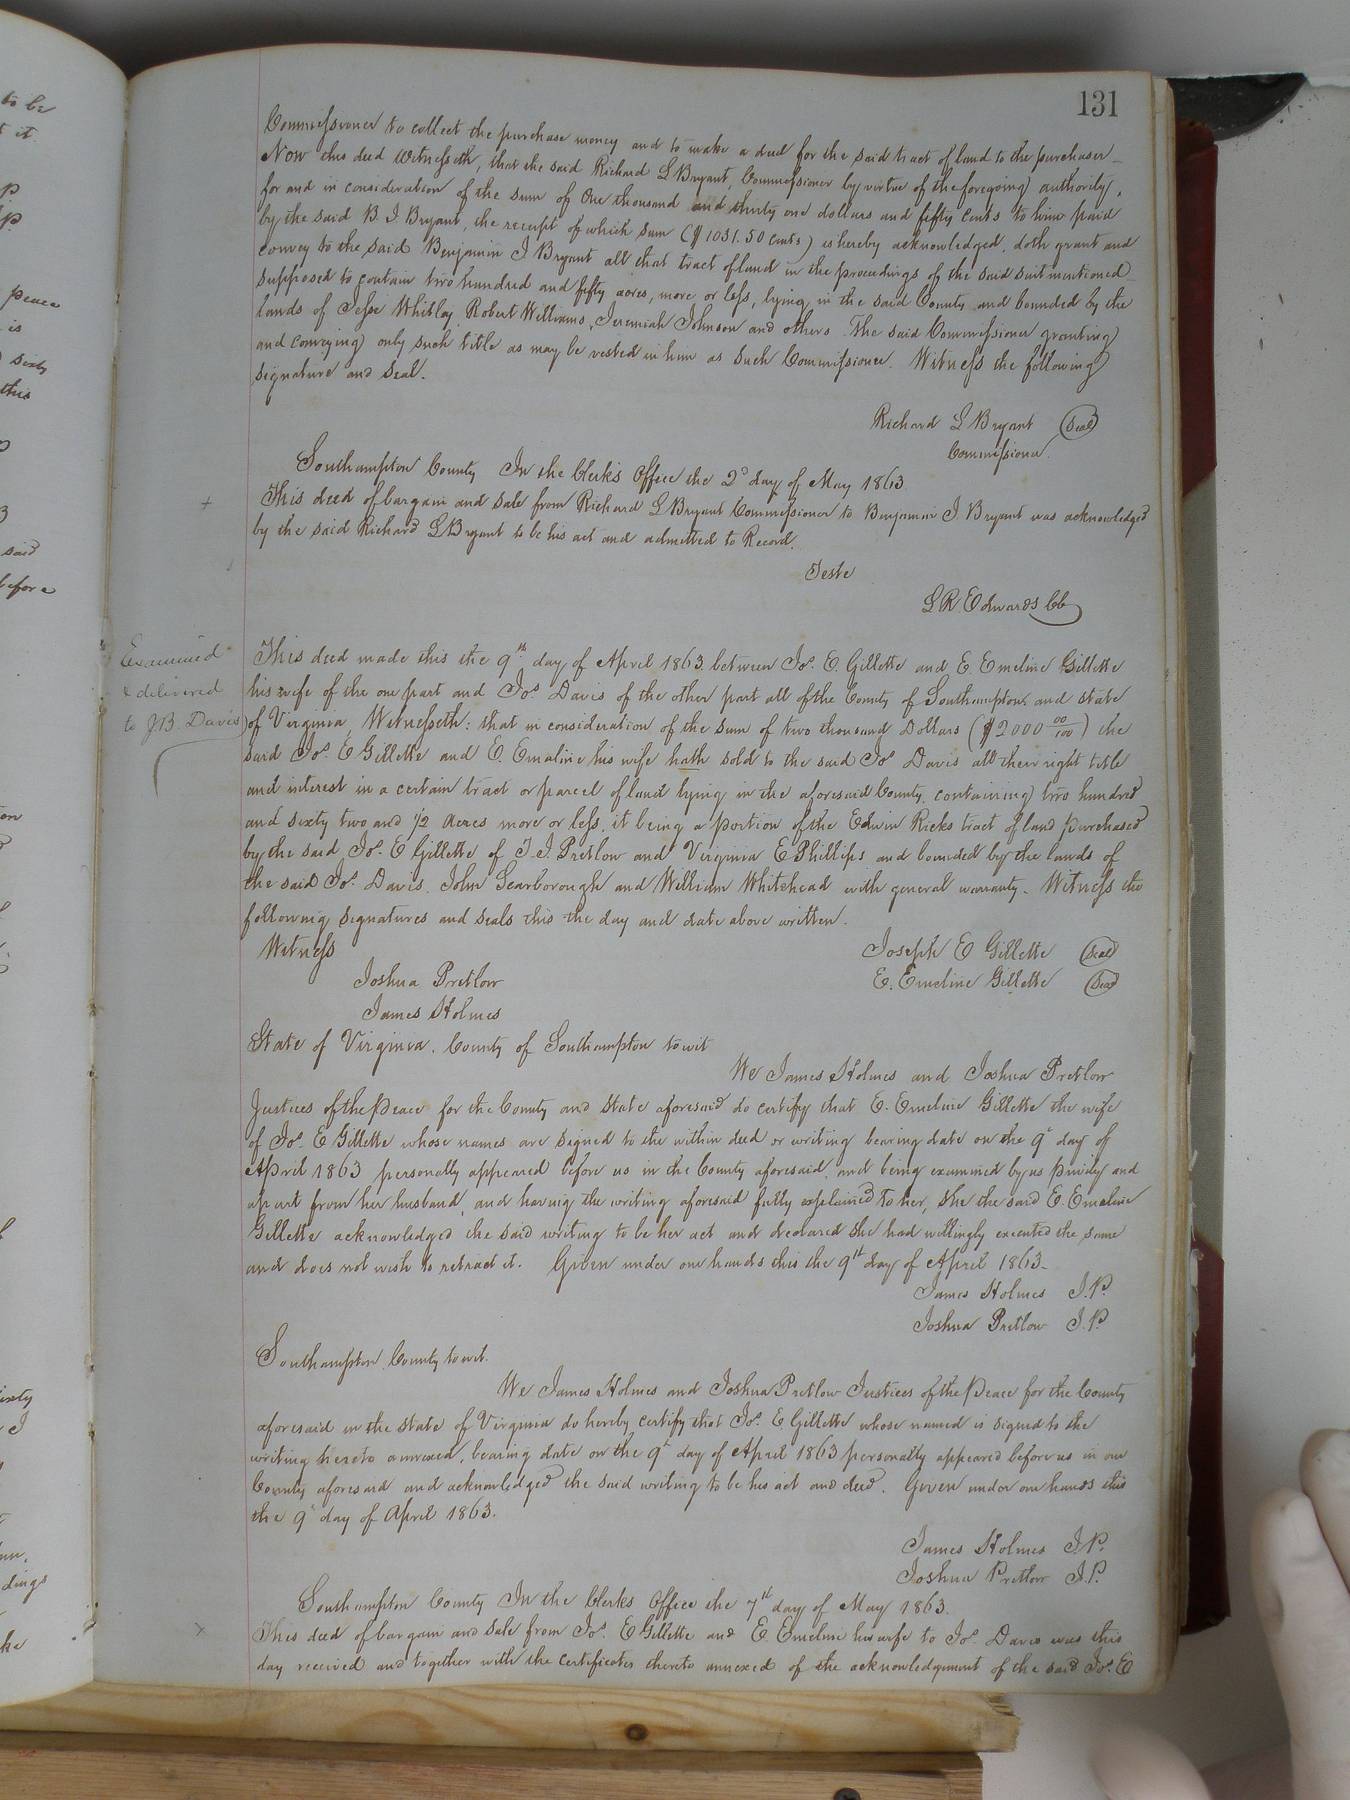 131
Commissioner to collect the purchase money and to make a deed for the said tract of land to the purchaser
Now this deed Witnesseth, that the said Richard L Bryant, Commissioner by virtue of the foregoing authority,
for and in consideration of the sum of One thousand and thirty one dollars and fifty cents to him paid
by the said B. J. Bryant, the receipt of which sum ($1031.50 cents) is hereby acknowledged, doth grant and
convey to the said Benjamin J Bryant all that tract of land in the proceedings of the said suit mentioned
supposed to contain two hundred and fifty acres, more or less, lying in the said County and bounded by the
lands of Jesse Whitley Robert Williams, Jeremiah Johnson and others The said Commissioner granting
and conveying only such title as may be vested in him as such Commissioner. Witness the following
signature and seal.
Richard L Bryant Seal
Commissioner.
Southampton County In the Clerk's Office the 2d day of May 1863
This deed of bargain and sale from Richard L Bryant Commissioner to Benjamin J. Bryant was acknowledged
by the said Richard L Bryant to be his act and admitted to Record.
Teste
L R Edwards CC
Examined
& delivered
to J B Davis
This deed made this the 9th day of April 1863 between Jos. E. Gillette and E. Emeline Gillette
his wife of the one part and Jos Davis of the other part all of the County of Southampton and State
of Virginia, Witnesseth: that in consideration of the sum of two thousand Dollars ($2000 00/100) the
said Jos. E Gillette and E. Emaline his wife hath sold to the said Jos Davis all their right title
and interest in a certain tract or parcel of land lying in the aforesaid County containing two hundred
and sixty two and 1/2 acres more or less, it being a portion of the Edwin Ricks tract of land purchased
by the said Jos. E Gillette of T. J. Pretlow and Virginia E Phillips and bounded by the lands of
the said Jos. Davis, John Scarborough and William Whitehead with general warranty. Witness the
following signatures and seals this the day and date above written.
Witness
Joseph E Gillette Seal
Joshua Pretlow
E. Emeline Gillette Seal
James Holmes
State of Virginia. County of Southampton to wit
We James Holmes and Joshua Pretlow
Justices of the Peace for the County and State aforesaid do certify that E. Emeline Gillette the wife
of Jos. E Gillette whose names are signed to the within deed or writing bearing date on the 9th day of
April 1863 personally appeared before us in the County aforesaid, and being examined by us privily and
apart from her husband, and having the writing aforesaid fully explained to her, She the said E. Emeline
Gillette acknowledged the said writing to be her act and declared she had willingly executed the same
and does not wish to retract it. Given under our hands this the 9th day of April 1863.
James Holmes J.P.
Joshua Pretlow J.P.
Southampton County to wit.
We James Holmes and Joshua Pretlow Justices of the Peace for the County
aforesaid in the State of Virginia do hereby certify that Jos. E Gillette whose named is signed to the
writing hereto annexed, bearing date on the 9th day of April 1863 personally appeared before us in our
County aforesaid and acknowledged the said writing to be his act and deed. Given under our hands this
the 9th day of April 1863.
James Holmes J.P.
Joshua Pretlow J.P.
Southampton County In the Clerks Office the 7th day of May 1863.
This deed of bargain and sale from Jos. E Gillette and E Emeline his wife to Jos. Davis was this
day received and together with the certificates thereto annexed of the acknowledgement of the said Jos. E